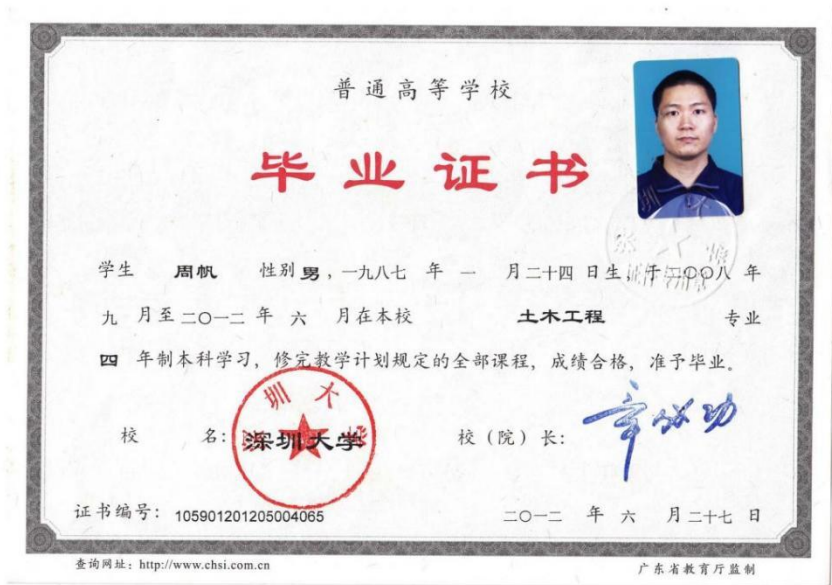 普通高等学校
毕业证书
学生 周帆 性别 男，一九八七 年 一 月二十四 日生，于二〇〇八 年
九 月至 二〇一二 年 六 月在本校 土木工程 专业
四 年制本科学习，修完教学计划规定的全部课程，成绩合格，准予毕业。
校 名：深圳大学 校（院）长：章必功
深圳大学
证书编号：105901201205004065 二〇一二 年 六 月二十七 日
查询网址：http://www.chsi.com.cn 广东省教育厅监制